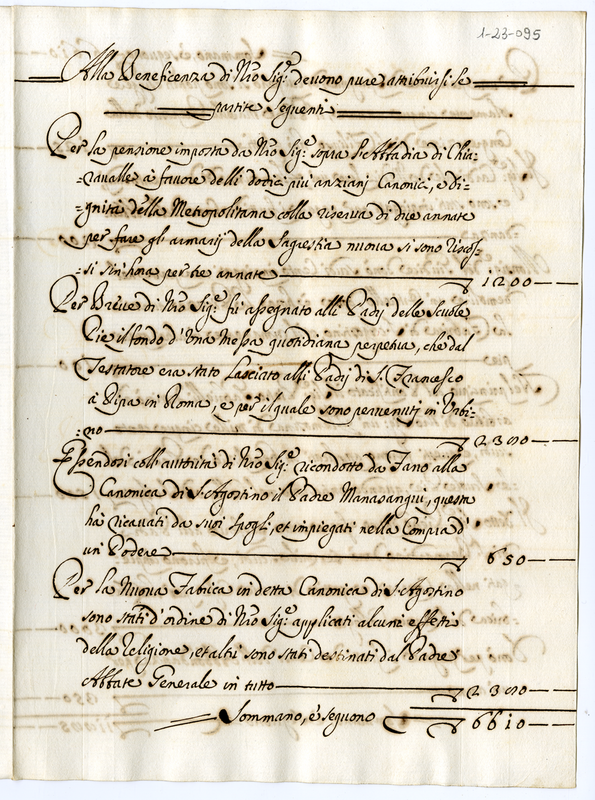 1-23-095
Alla Beneficenza di Nrõ Sig.re devono pure attribuirsi le
partite seguenti
Per la pensione imposta da Nrõ Sig.re sopra l'Abbadia di Chia:
:ravalle à favore delli dodici più anziani Canonici, e Di:
:gnità della Metropolitana colla riserva di due annate
per fare gli armarij della Sagrestia nuova si sono riscos:
:si sin'hora per tre annate 1200
Per Breve di Nrõ Sig.re fù assegnato alli Padij delle Scuole
Pie il fondo d'una Messa quotidiana perpetua, che dal
Testatore era stato Lasciato alli Padij di S. Francesco
à Ripa in Roma, e per il quale sono pervenuti in Urbi:
:no 2300
Essendosi coll'autorità di Nrõ Sig.re ricondotto da Fano alla
Canonica di S. Agostino il Padre Manasangui, questa
hà ricavati da suoi spogli, et impiegati nella Compra d'
un Podere 650
Per la Nuova Fabrica in detta Canonica di S. Agostino
sono stati d'ordine di Nrõ Sig.re applicati alcuni effetti
della Religione, et altri sono stati destinati dal Padre
Abbate Generale in tutto 2300
Sommano, e seguono 6610